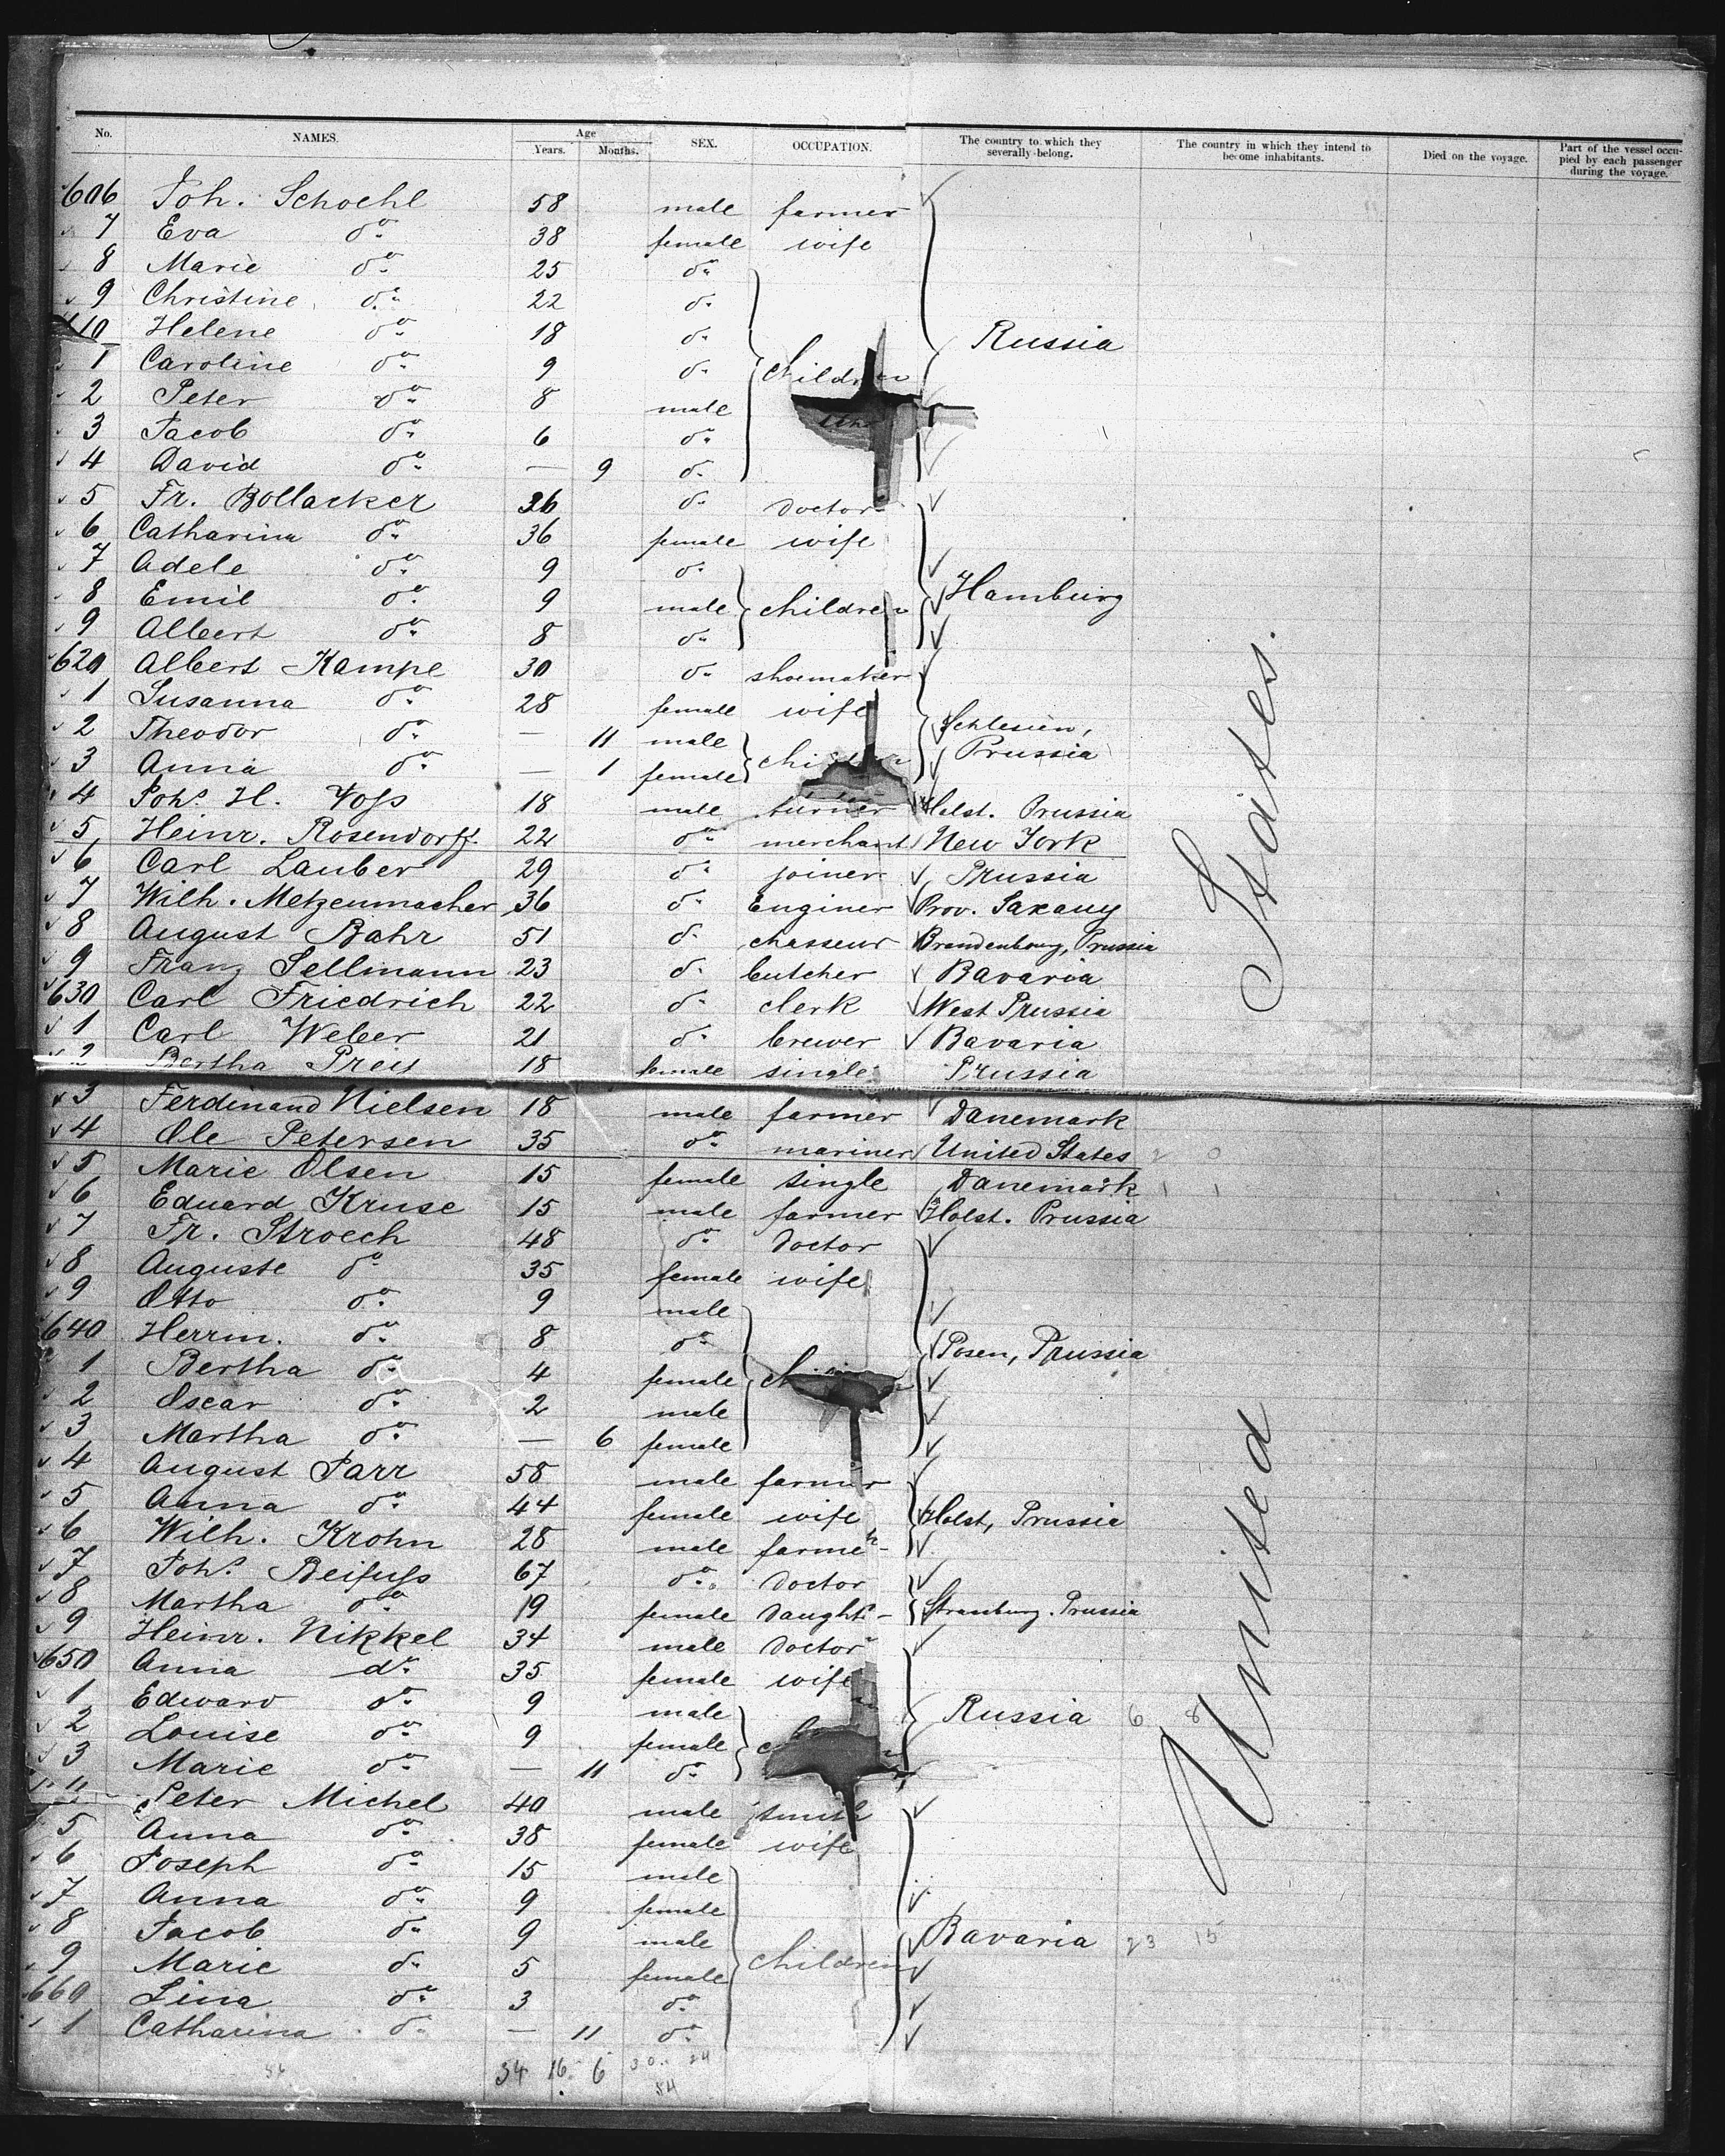 No. NAMES. Age Years. Months. SEX. OCCUPATION. The country to which they severally belong. The country in which they intend to become inhabitants. Died on the voyage. Part of the vessel occupied by each passenger during the voyage.
606 Joh. Schoehl 58 male farmer
7 Eva do. 38 female wife
8 Marie do. 25 do.
9 Christine do. 22 do.
10 Helene do. 18 do. Russia
1 Caroline do. 9 do. Children
2 Peter do. 8 male
3 Jacob do. 6 do.
4 David do. — 9 do.
5 Fr. Bollacker 36 do. doctor
6 Catharina do. 36 female wife
7 Adele do. 9 do.
8 Emil do. 9 male children Hamburg
9 Albert do. 8 do.
620 Albert Kampe 30 do. shoemaker
1 Susanna do. 28 female wife Schlesien,
2 Theodor do. — 11 male Prussia
3 Anna do. — 1 female
4 Johs. H. Voss 18 male turner Holst. Prussia
5 Heinr. Rosendorff 22 do. merchant New York
6 Carl Lauber 29 do. joiner Prussia
7 Wilh. Metzenmacher 36 do. Enginer Prov. Saxany
8 August Bahr 51 do. chasseur Brandenbourg, Prussia
9 Franz Sellmann 23 do. butcher Bavaria
630 Carl Friedrich 22 do. clerk West Prussia
1 Carl Weber 21 do. brewer Bavaria
2 Bertha 18 female single Prussia
3 Ferdinand Nielsen 18 male farmer Danemark
4 Ole Petersen 35 do. mariner United States 2 0
5 Marie Olsen 15 female single Danemark 1 1
6 Eduard Kruse 15 male farmer Holst. Prussia
7 Fr. Stroech 48 do. doctor
8 Auguste do. 35 female wife
9 Otto do. 9 male
640 Herrm. do. 8 do. Posen, Prussia
1 Bertha do. 4 female
2 Oscar do. 2 male
3 Martha do. — 6 female
4 August Jarr 58 male farmer
5 Anna do. 44 female wife Holst, Prussia
6 Wilh. Krohn 28 male farmer
7 Johs. Beifuss 67 do. doctor
8 Martha do. 19 female daught. Prussia
9 Heinr. Nikkel 34 male doctor
650 Anna do. 35 female wife
1 Edward do. 9 male Russia 6 8
2 Louise do. 9 female
3 Marie do. — 11 do.
Peter Michel 40 male smith
5 Anna do. 38 female wife
6 Joseph do. 15 male
7 Anna do. 9 female
8 Jacob do. 9 male Bavaria 23 15
9 Marie do. 5 female children
660 Lina do. 3 do.
1 Catharina do. — 11 do.
34 16 6 30 24
54
United States.